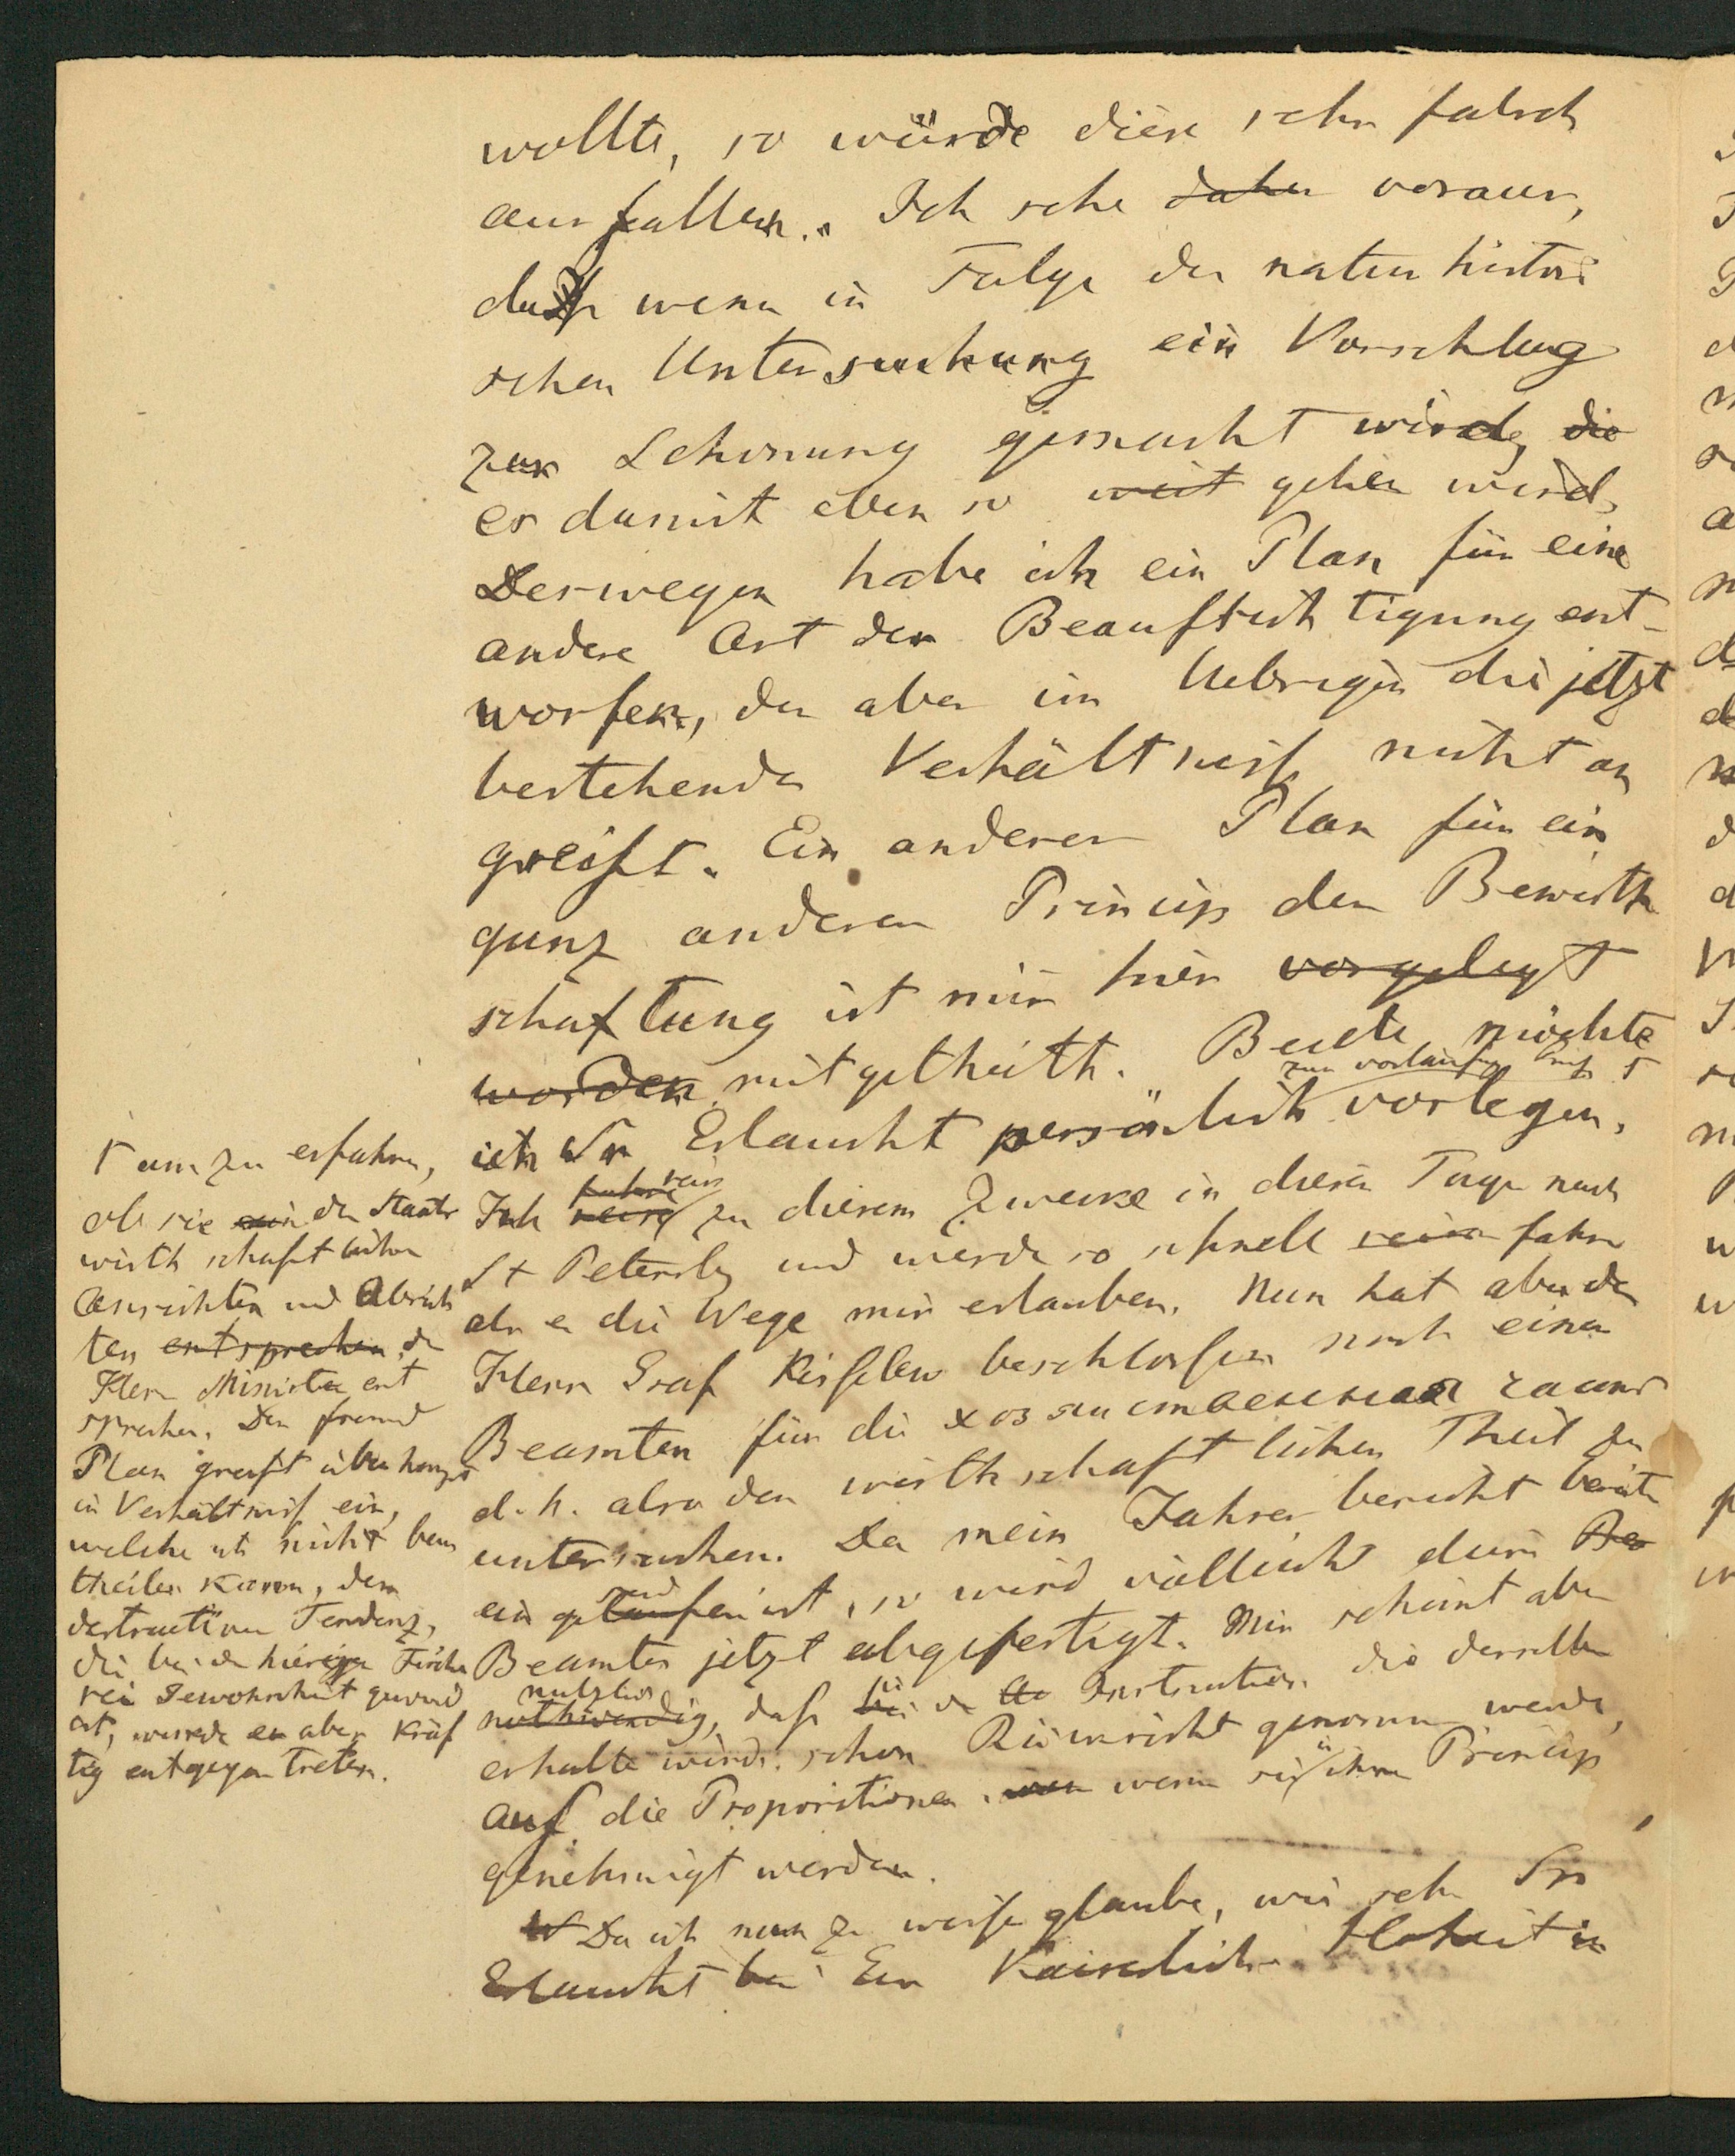 wollte, so würde diese sehr falsch
ausfallen. Ich sehe daher voraus,
daß wenn in Folge der naturhistori
schen Untersuchung ein Vorschlag
zur Schonung gemacht wird, die
es damit eben so weit gehen wird,
Deswegen habe ich ein Plan für eine
andere Art der Beaufsichtigung ent-
worfen, der aber im Uebrigen die jetzt
bestehenden Verhältniss nicht an
greift. Ein anderer Plan für ein
ganz anderes Princip der Bewirth
schaftung ist mir hier vorgelegt
worden mitgetheilt. Beide möchte
zur vorläufig
ich Sr Erlaucht persönlich vorlegen.
fahre reise
Ich reise zu diesem Zwecke in diesen Tagen nach
St Petersbg und werde so schnell reisen fahren
als es die Wege mir erlauben. Nun hat aber der
Herr Graf Kisselew beschlossen noch einen
Beamten für die хозяйственная часть
d. h. also den wirthschaftlichen Theil zu
untersuchen. Da mein Jahresbericht bereits
ein gelaufen ist, so wird vielleicht dieser Be
sand
Beamter jetzt abgefertigt. Mir scheint aber
nützlich
nothwendig, daß bei der Instruction die derselbe
erhalten wird, schon Rücksicht genommen werde,
auf die Propositionen, wenn sie in ihrem Princip
genehmigt werden.
W Da ich nun zu wissen glaube, wie sehr Sr
Erlaucht bei Eur Kaiserlich Hoheit in
Γ um zu erfahren,
ob sie in den Staats
wirthschaftlichen
Ansichten und Absich
ten entsprechen, des
Herrn Ministers ent
sprechen. Der fremde
Plan greift überhaupt
in Verhältniss ein,
welche ich nicht beur
theilen kann, dem
destructiven Tendenz,
die bei der hiesigen Fische
rei Gewohnheit geword
ist, würde er aber kräf
tig entgegen treten.